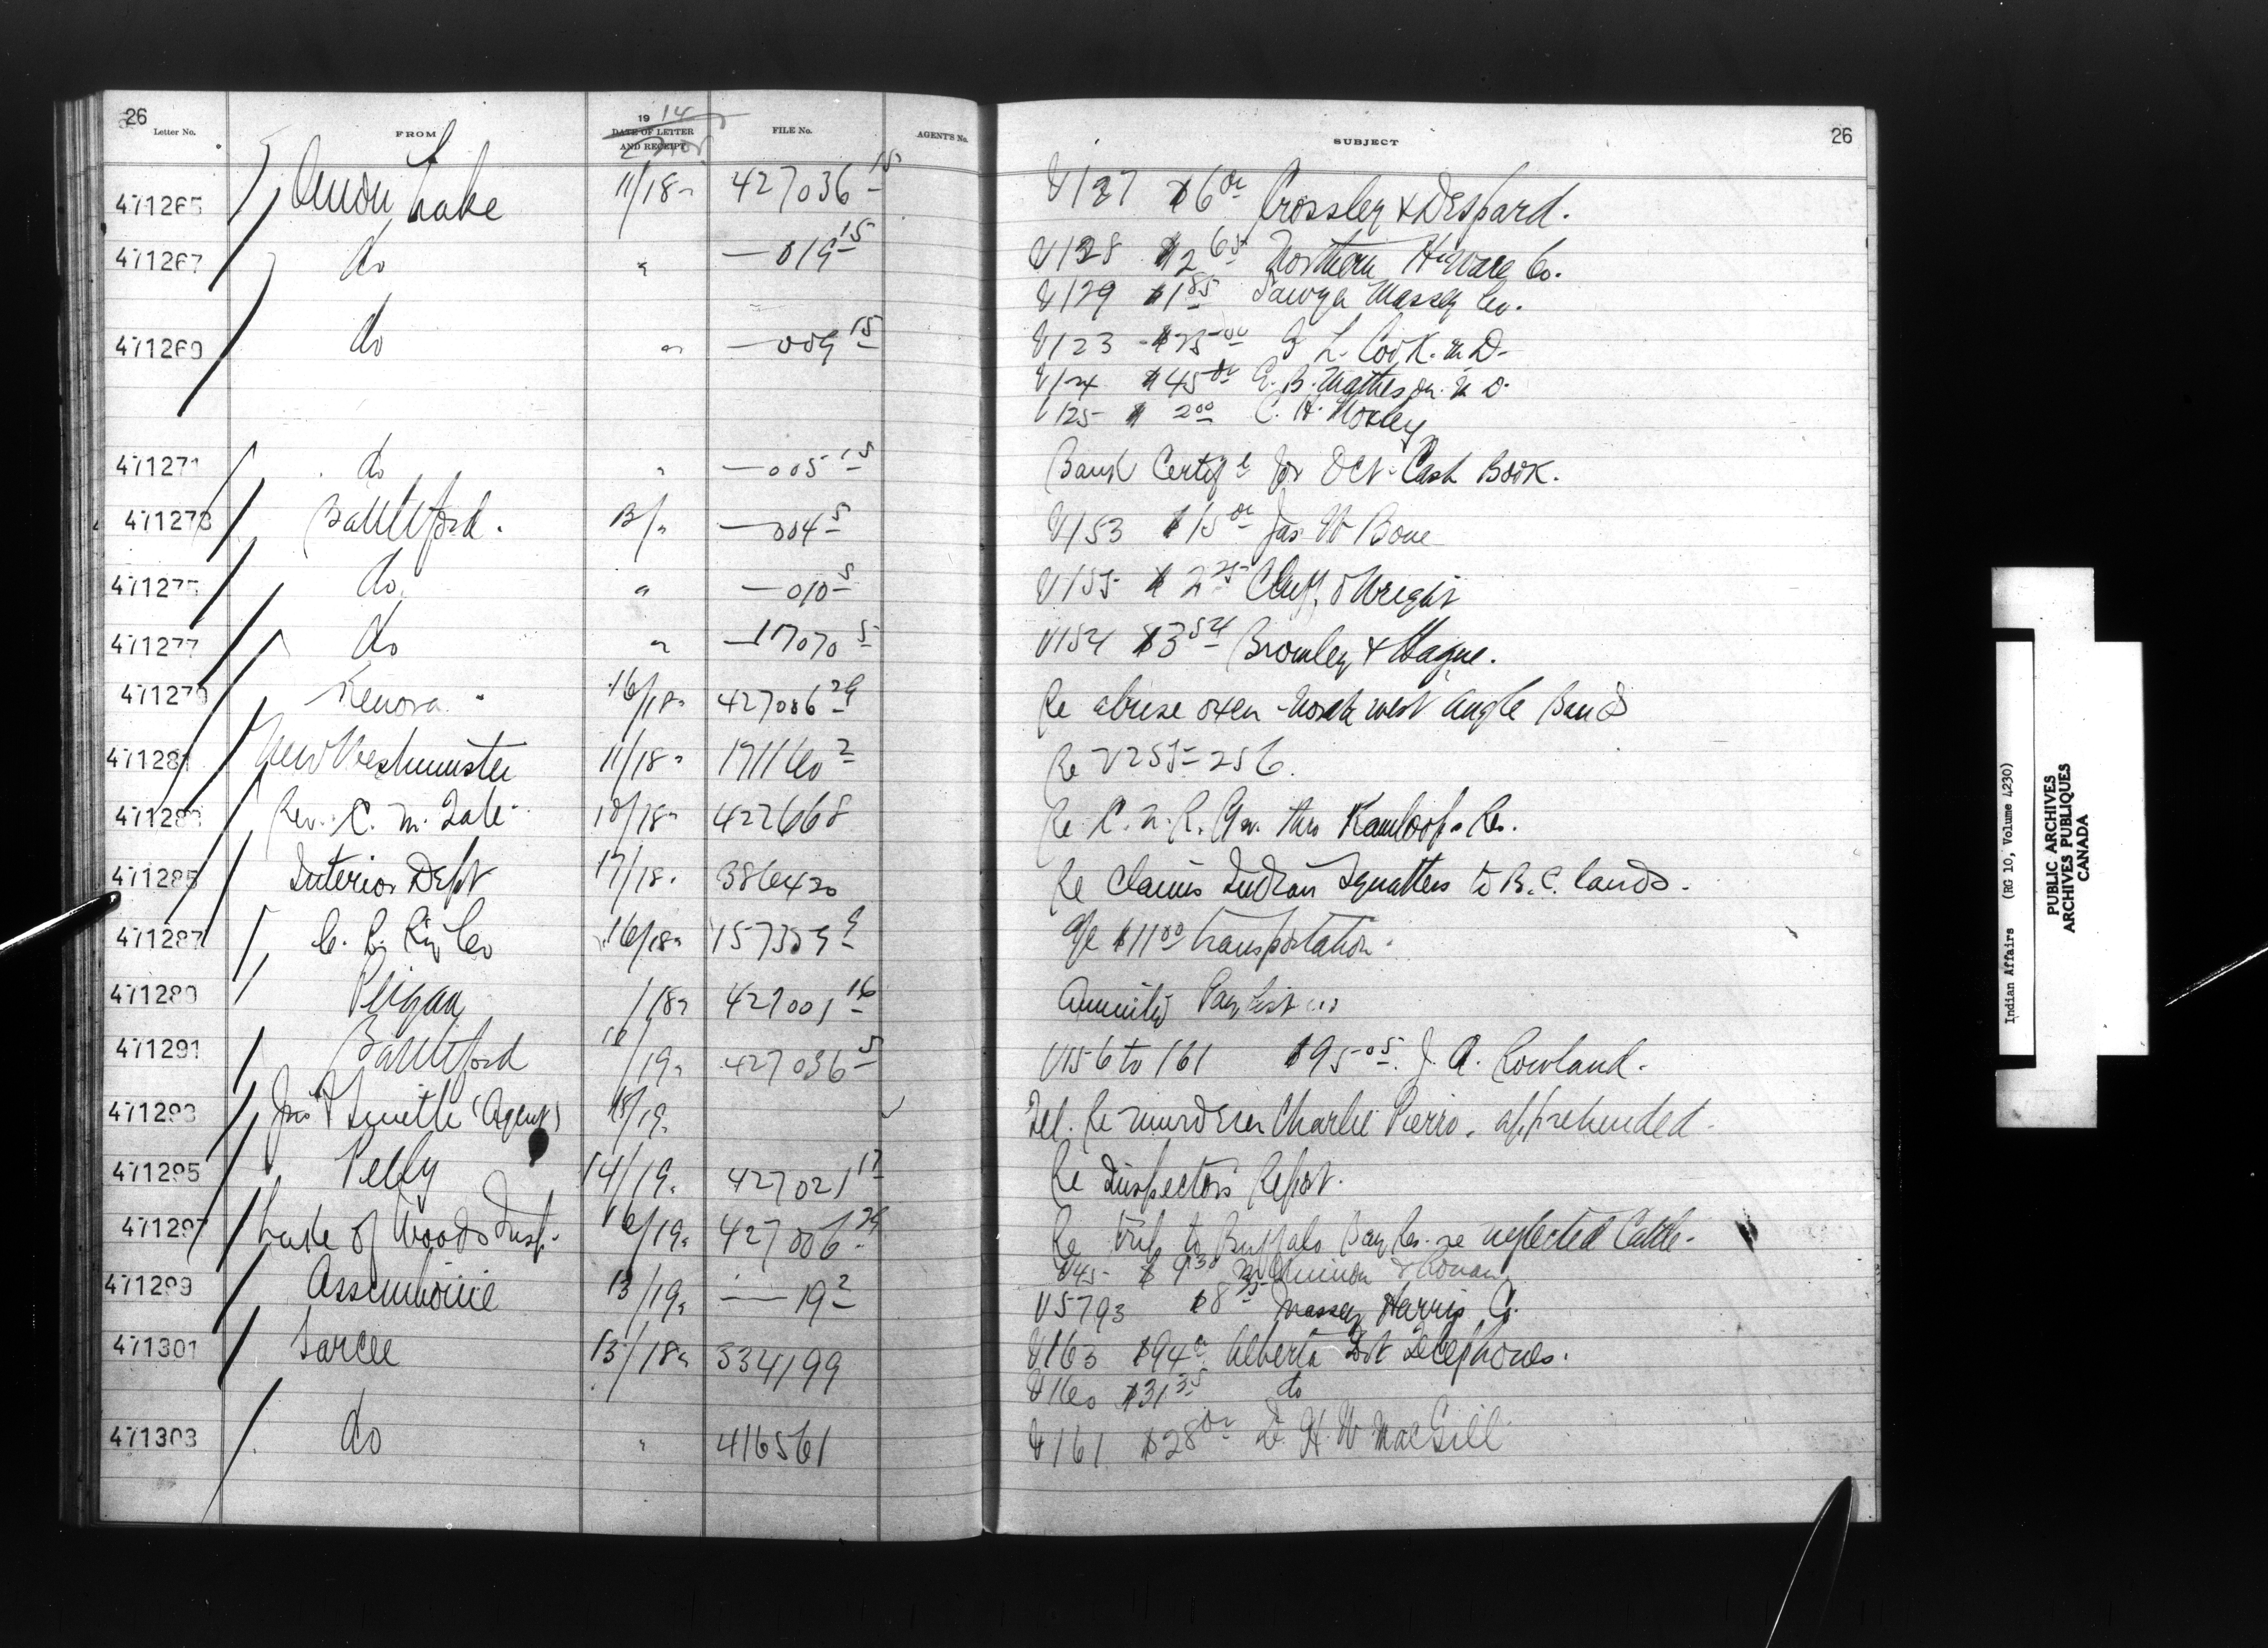 26
Letter No. FROM 19 14 DATE OF LETTER AND RECEIPT Nov FILE No. AGENT'S No. SUBJECT 26
471265 Onion Lake 11/18 " 427036-15 V127 $6 00 Crossley & Despard.
471267 do " — 019 15 V128 $2 65 Northern H'ware Co.
V129 $1 85 Sawyer Massey Co.
471269 do " — 009 15 V123 $25 00 L. Cook. M.D.
V124 $45 00 E. B. Matheson. M D.
V125 $ 2 00 C. H.
471271 do " — 005 15 Bank Certif e for Oct. Cash Book.
471273 Battleford. 13/ " — 004 5 V153 $15 00 Jas W Bone
471275 do " — 010 5 V155 $ 2 25 Wright
471277 do " — 17070 5 V154 $3 54 Bromley & Hague.
471279 Kenora. 16/18 " 427006 29 Re abuse oxen - North west angle Band
471281 New Westminster 11/18 " 171160 2 Re V255-256.
471283 Rev. C. M. Tate 10/18 " 422668 Re C. N. R. thro Kamloops Res.
471285 Interior Dept 17/18 " 386420 Re Claims Indian Squatters to B. C. lands.
471287 C. P. Ry Co 16/18 " 157359 9 a/c $11 00 transportation.
471289 Peigan /18 " 427001 16 Annuity Pay List
471291 Battleford 16/19 " 427036 5 V156 to 161 $95 05. J. A. Rowland.
471293 Jno F Smith (Agent) 18/19 " Tel. Re murderer Charlie Pierro. apprehended.
471295 Pelly 14/19 " 427021 17 Re Inspectors Report.
471297 Lake of Woods Insp. 16/19 " 427006 29 Re trip to Buffalo Bay Res. re neglected Cattle.
V45 $ 9 30
471299 Assiniboine 13/19 " — 19 2 V5793 $8 35 Massey Harris Co.
471301 Sarcee 13/18 " 334199 V163 $94 c Alberta Gvt Telephones.
V160 $31 35 do
471303 do " 416561 V161 $28 00 D. H. W MacGill
Indian Affairs (RG 10, Volume 4230)
PUBLIC ARCHIVES
ARCHIVES PUBLIQUES
CANADA